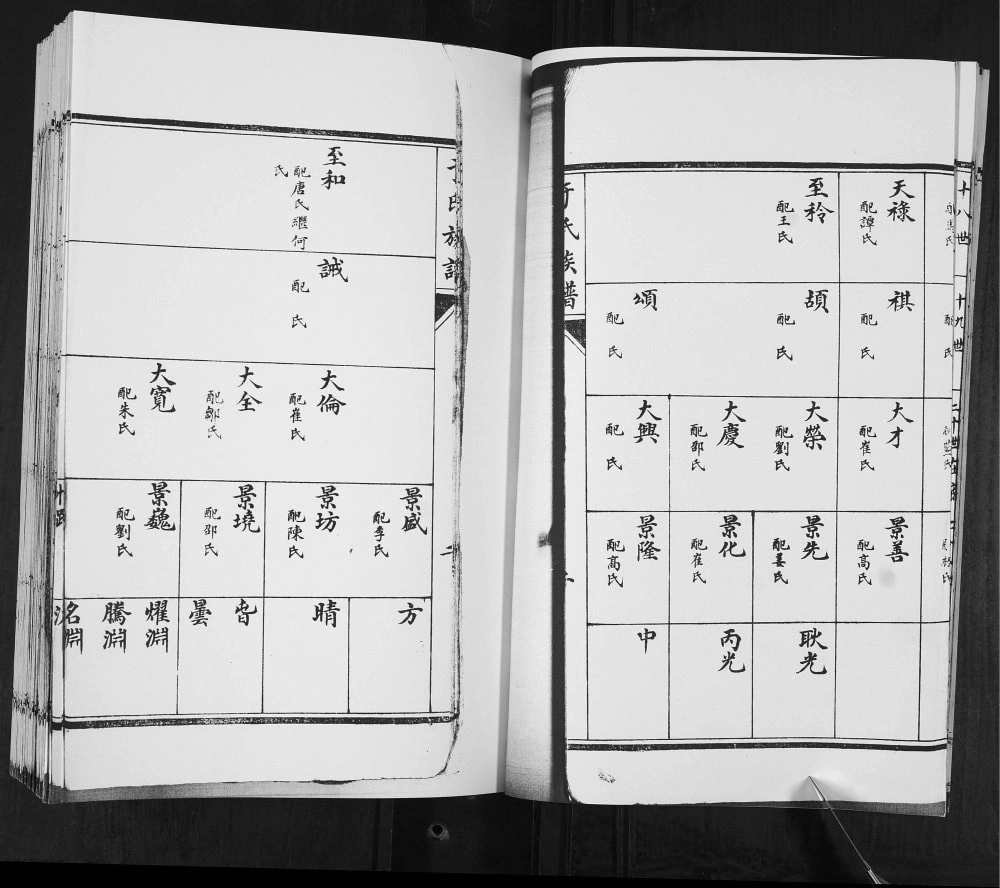 十八世
天祿
配譚氏
至秢
配王氏
十九世
祺
配 氏
頡
配 氏
頌
配 氏
大才
配崔氏
大榮
配劉氏
大慶
配邵氏
大興
配 氏
景善
配高氏
景先
配姜氏
景化
配崔氏
景隆
配高氏
耿光
丙光
中
于氏族譜
至和
配唐氏繼何
氏
諴
配 氏
大倫
配崔氏
大全
配鄒氏
大寬
配朱氏
景盛
配李氏
景坊
配陳氏
景境
配邵氏
景巍
配劉氏
方
晴
曇
耀淵
騰淵
洺淵